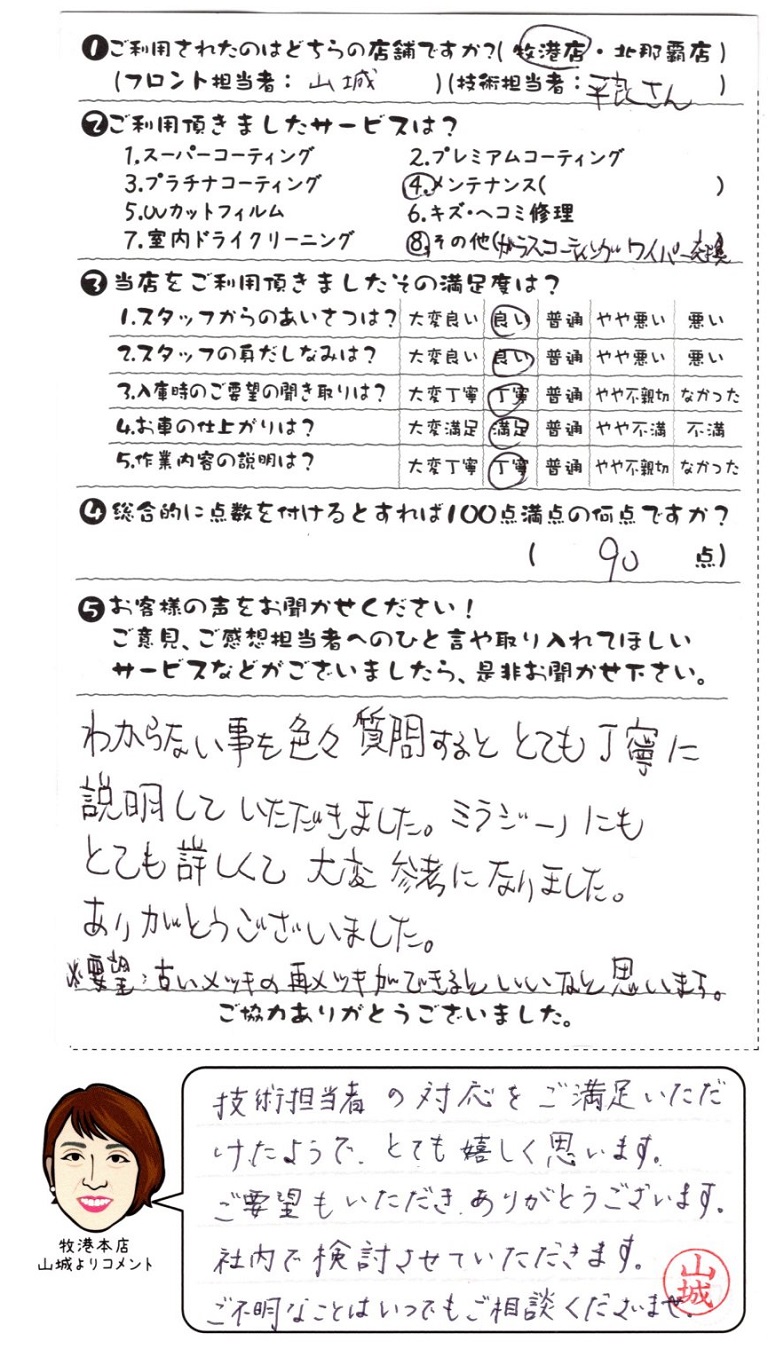 ❶ご利用されたのはどちらの店舗ですか?(牧港店・北那覇店)
(フロント担当者:山城)(技術担当者:平良さん)
❷ご利用頂きましたサービスは?
1.スーパーコーティング 2.プレミアムコーティング
3.プラチナコーティング 4.メンテナンス( )
5.UVカットフィルム 6.キズ・ヘコミ修理
7.室内ドライクリーニング 8.その他(ガラスコーティング ワイパー交換
❸当店をご利用頂きましたその満足度は?
1.スタッフからのあいさつは? 大変良い 良い 普通 やや悪い 悪い
2.スタッフの身だしなみは? 大変良い 良い 普通 やや悪い 悪い
3.入庫時のご要望の聞き取りは? 大変丁寧 丁寧 普通 やや不親切 なかった
4.お車の仕上がりは? 大変満足 満足 普通 やや不満 不満
5.作業内容の説明は? 大変丁寧 丁寧 普通 やや不親切 なかった
❹総合的に点数を付けるとすれば100点満点の何点ですか?
( 90 点)
❺お客様の声をお聞かせください!
ご意見、ご感想担当者へのひと言や取り入れてほしい
サービスなどがございましたら、是非お聞かせ下さい。
わからない事を色々質問するととても丁寧に
説明していただきました。ミラジーノにも
とても詳しくて大変参考になりました。
ありがとうございました。
※要望:古いメッキの再メッキができるといいなと思います。
ご協力ありがとうございました。
技術担当者の対応をご満足いただ
けたようで、とても嬉しく思います。
ご要望もいただき、ありがとうございます。
社内で検討させていただきます。
ご不明なことはいつでもご相談くださいませ。
山城
牧港本店
山城よりコメント